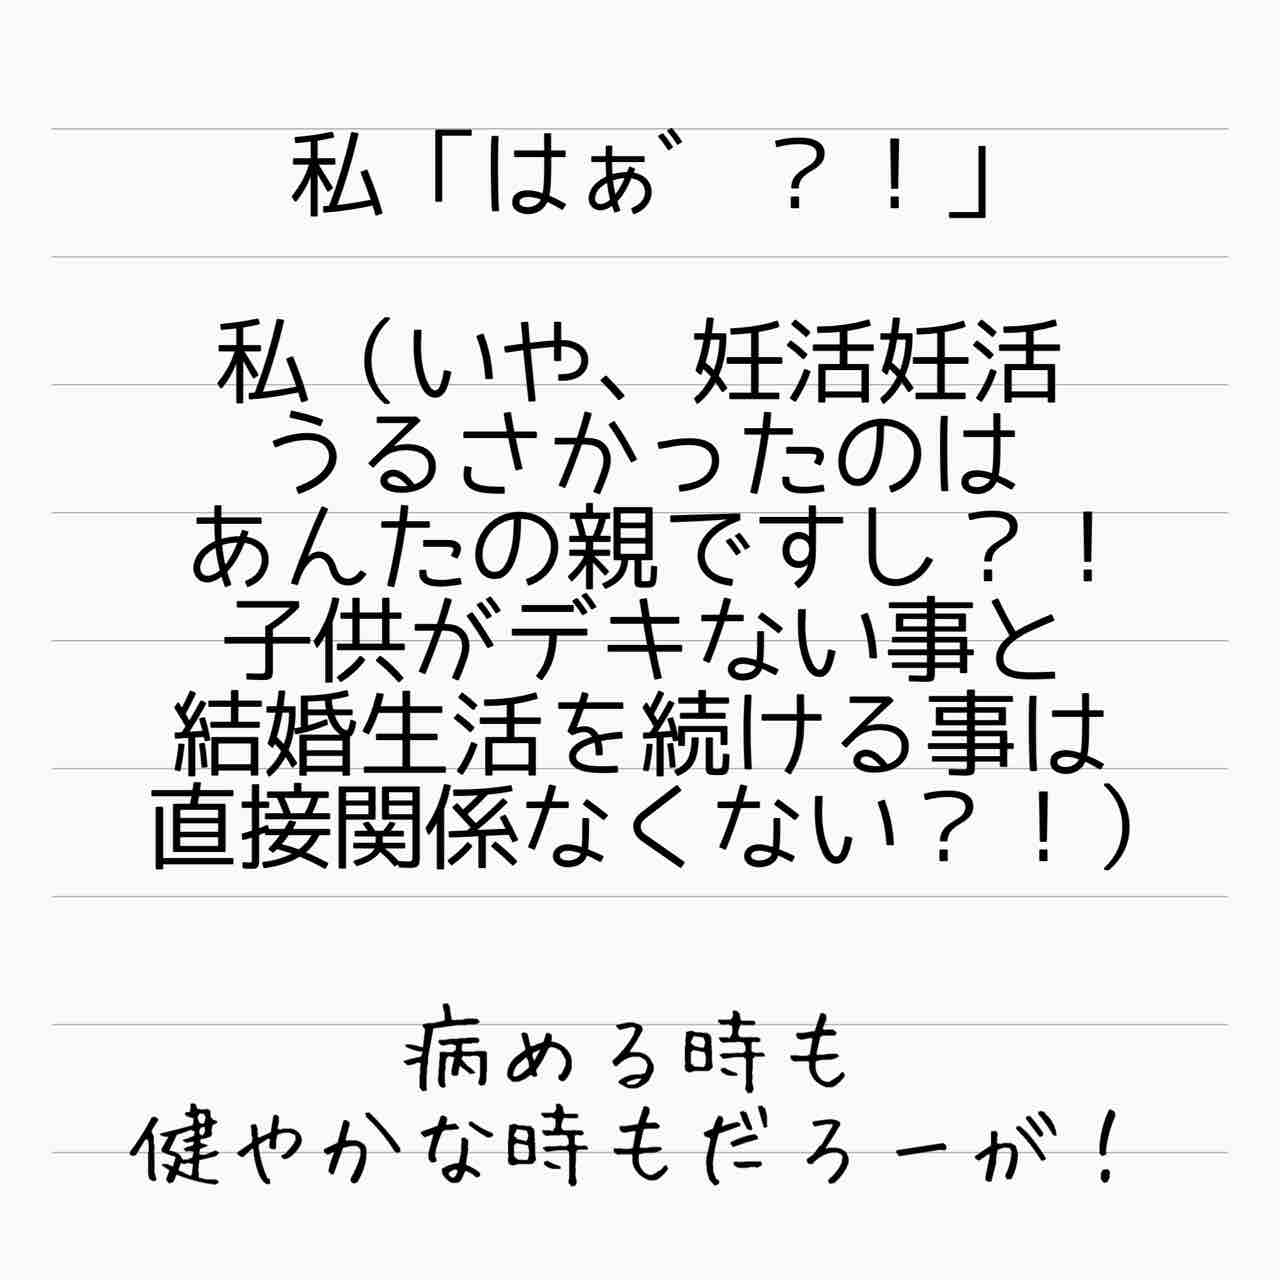 私「はぁ゛？！」
私（いや、妊活妊活
うるさかったのは
あんたの親ですし？！
子供がデキない事と
結婚生活を続ける事は
直接関係なくない？！）
病める時も
健やかな時もだろーが！